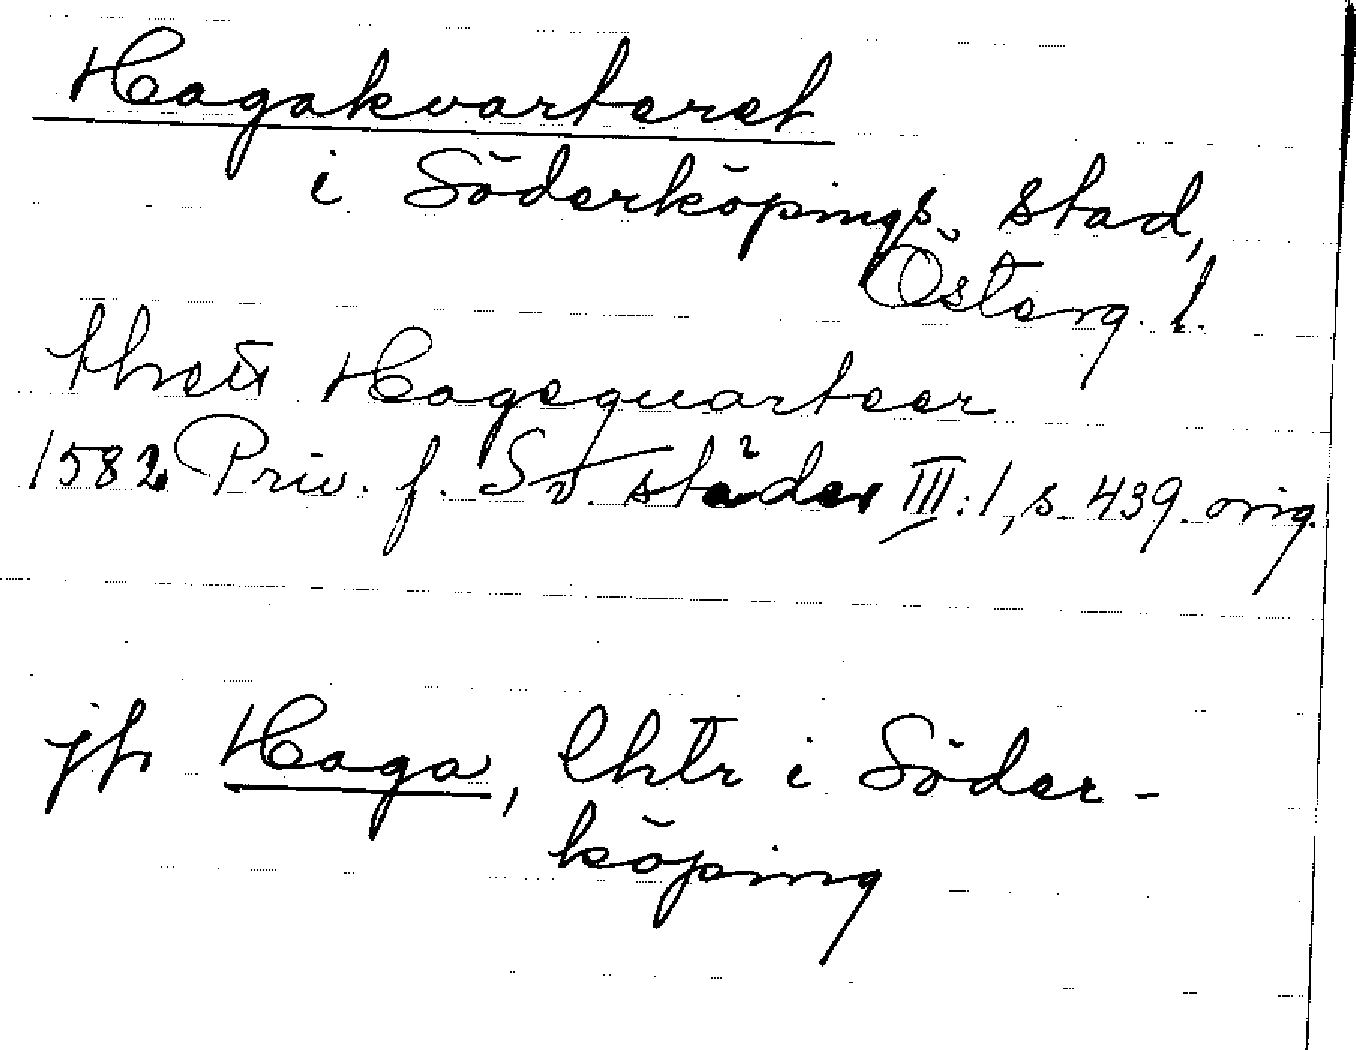 Hagakvarteret
i Söderköpings stad,
Österg. l.
thett Hagequarteer
1582 Priv. f. Sv. städer III:1, s. 439. orig.
jfr Haga, lhtr i Söder-
köping